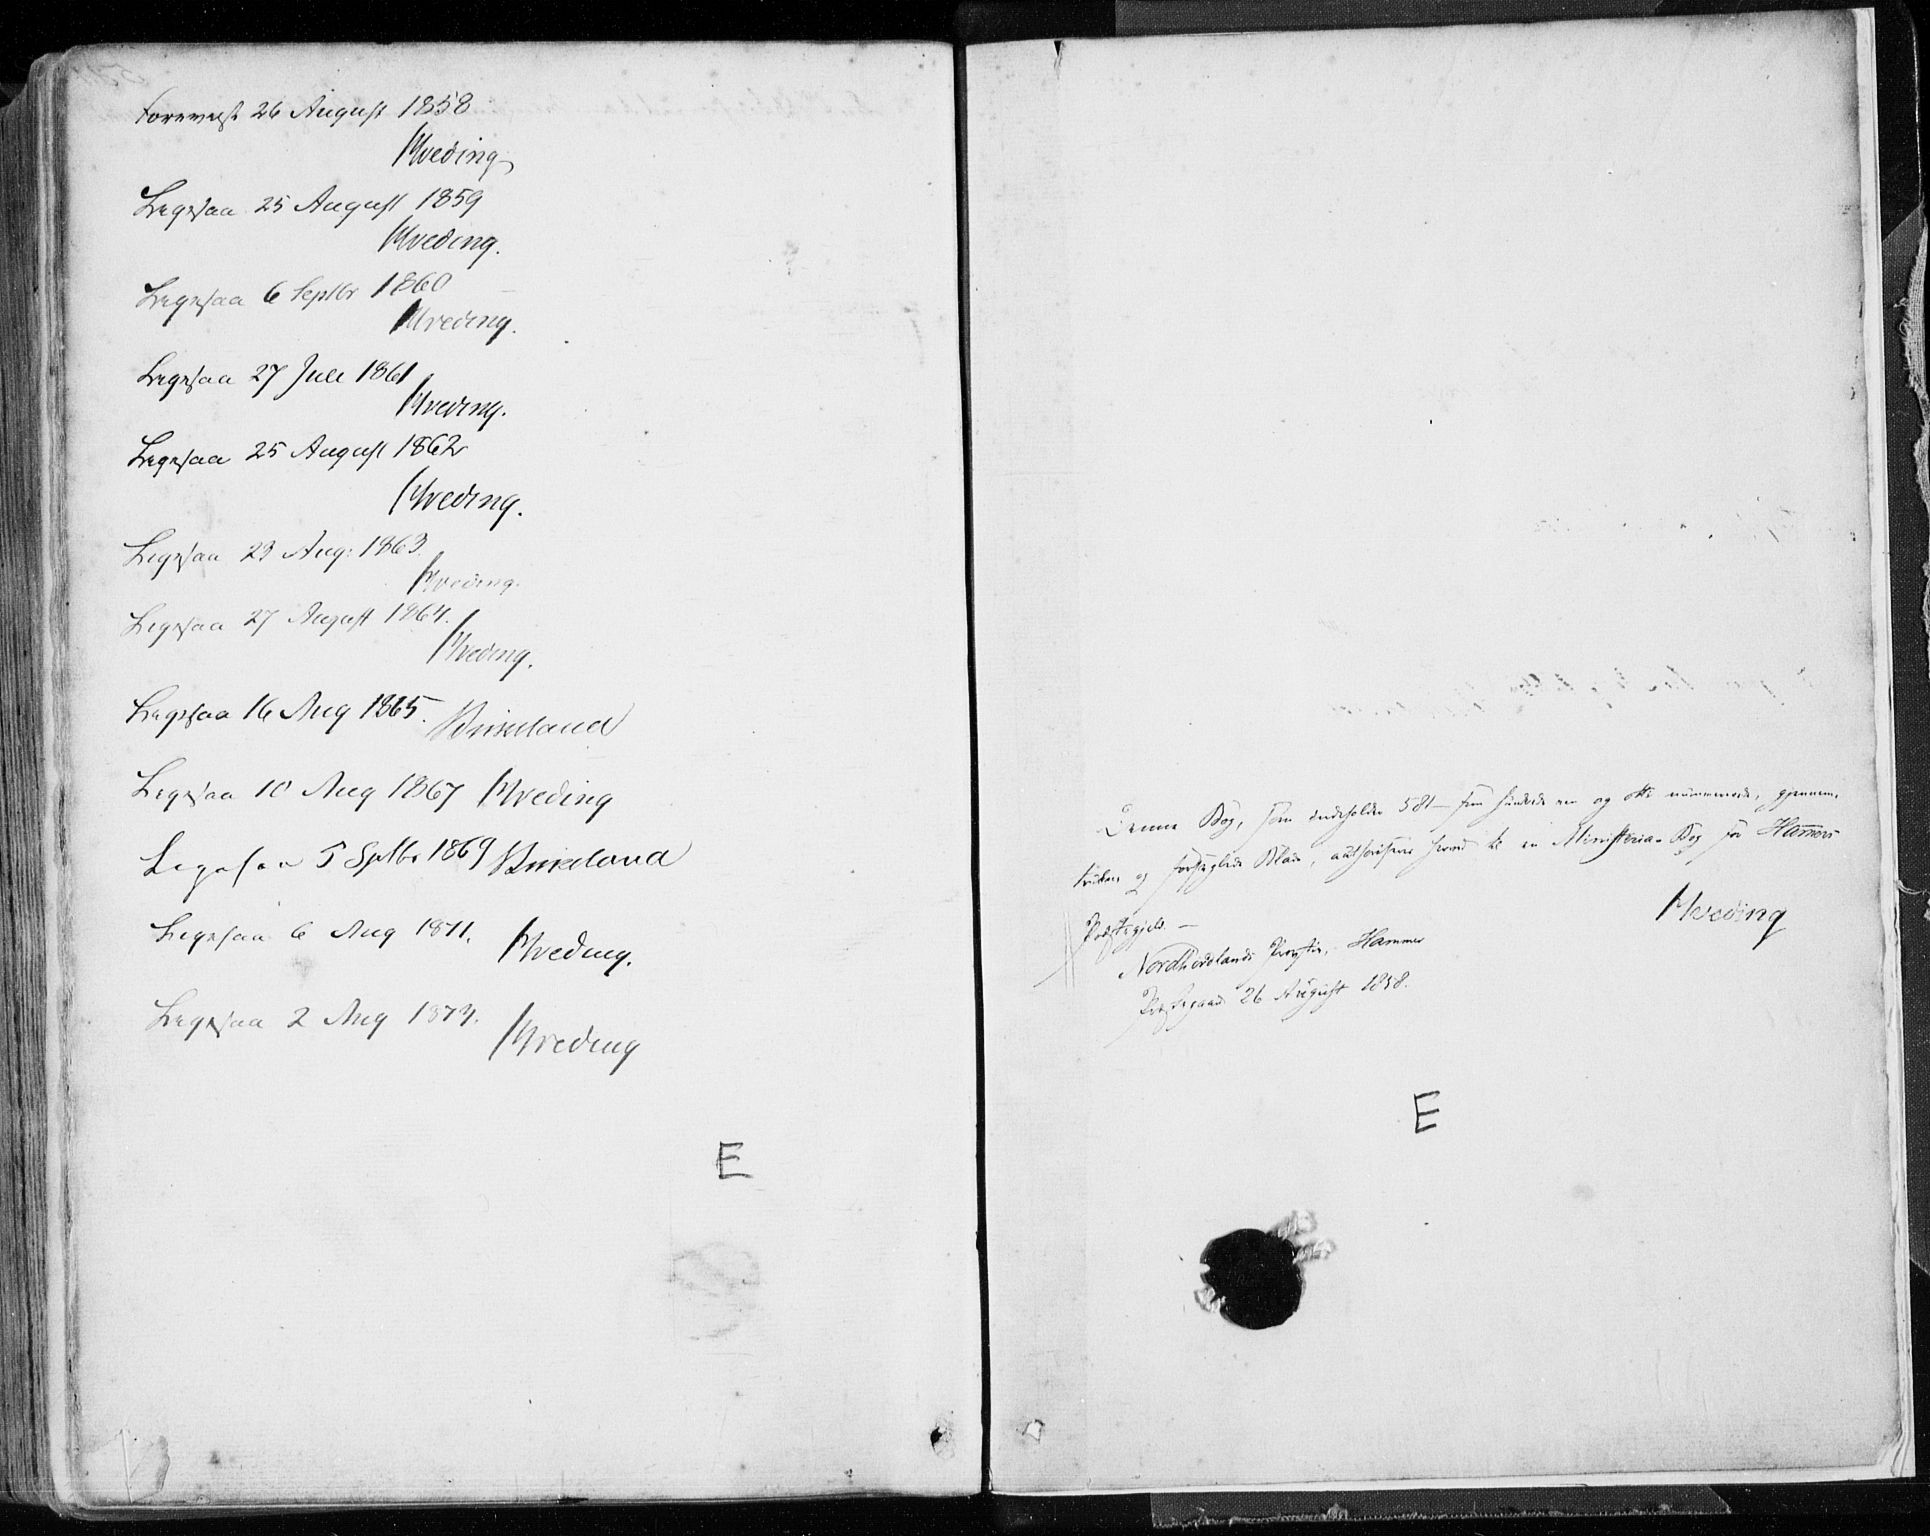 Forevist 26 August 1858
Kveding
Ligesaa 25 August 1859
Kveding.
Ligesaa 6 Septbr 1860
Kveding.
Ligesaa 27 Juli 1861
Kveding.
Ligesaa 25 August 1862
Kveding.
Ligesaa 23 Aug: 1863.
Kveding.
Ligesaa 27 August 1864.
Kveding.
Ligesaa 16 Aug 1865. Birkeland
Ligesaa 10 Aug 1867 Kveding
Ligesaa 5 Septbr 1869 Birkeland
Ligesaa 6 Aug 1871. Kveding.
Ligesaa 2 Aug 1873. Kveding
E
Denne Bog, som indeholder 581 – fem hundrede een og otti nummererede, gjennem-
trukne og forseglede Blade, authoriseres herved til en Ministerial-Bog for Hammers
Præstegjeld. –
Kveding
Nordhordlands Provsti, Hammer
Præstegaard 26 August 1858.
E